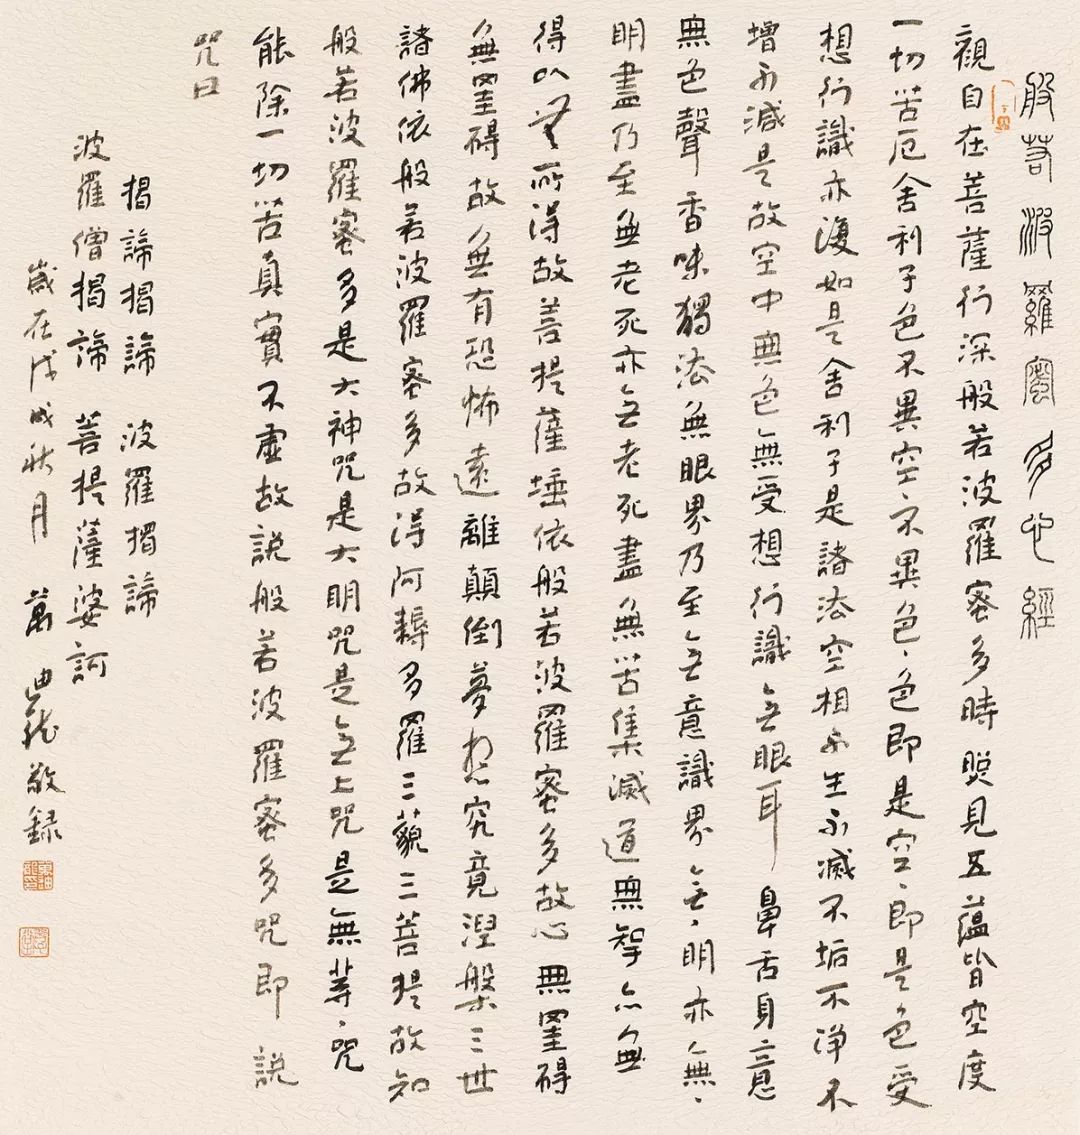 般若波羅蜜多心經
觀自在菩薩行深般若波羅蜜多時照見五蘊皆空度
一切苦厄舍利子色不異空不異色、色即是空、即是色受
想行識亦復如是舍利子是諸法空相不生不滅不垢不淨不
增不減是故空中無色無受想行識無眼耳鼻舌身意
無色聲香味觸法無眼界乃至無意識界無、明亦無、
明盡乃至無老死亦無老死盡無苦集滅道無智亦無
得以無所得故菩提薩埵依般若波羅蜜多故心無罣礙
無罣礙故無有恐怖遠離顛倒夢想究竟涅槃三世
諸佛依般若波羅蜜多故得阿耨多羅三藐三菩提故知
般若波羅蜜多是大神咒是大明咒是無上咒是無等、咒
能除一切苦真實不虛故說般若波羅蜜多咒即說
咒曰
揭諦揭諦 波羅揭諦
波羅僧揭諦 菩提薩婆訶
歲在戊戌秋月 萬 敬録